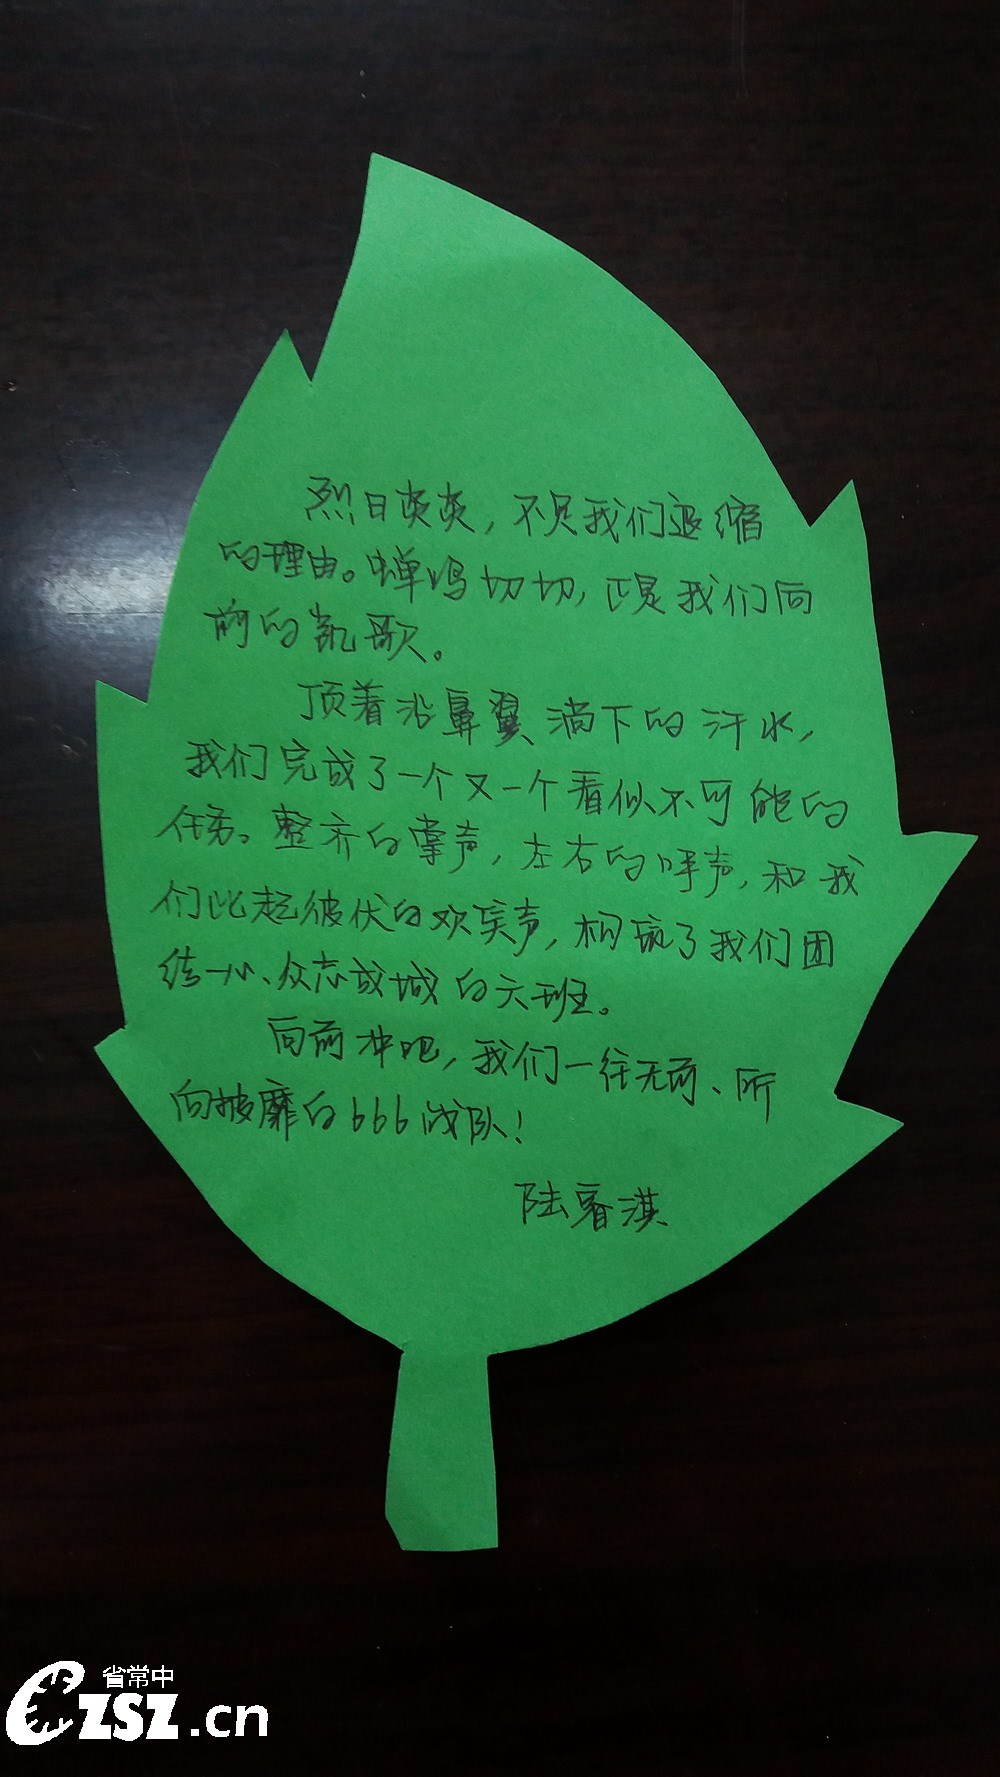 烈日炎炎，不足我们退缩
的理由。蝉鸣切切，正是我们向
前的凯歌。
顶着沿鼻翼淌下的汗水，
我们完成了一个又一个看似不可能的
任务。整齐的掌声，左右的呼声，和我
们此起彼伏的欢笑声，构筑了我们团
结一心、众志成城的六班。
向前冲吧，我们一往无前、所
向披靡的666战队！
陆睿淇
省常中
CZSZ.cn